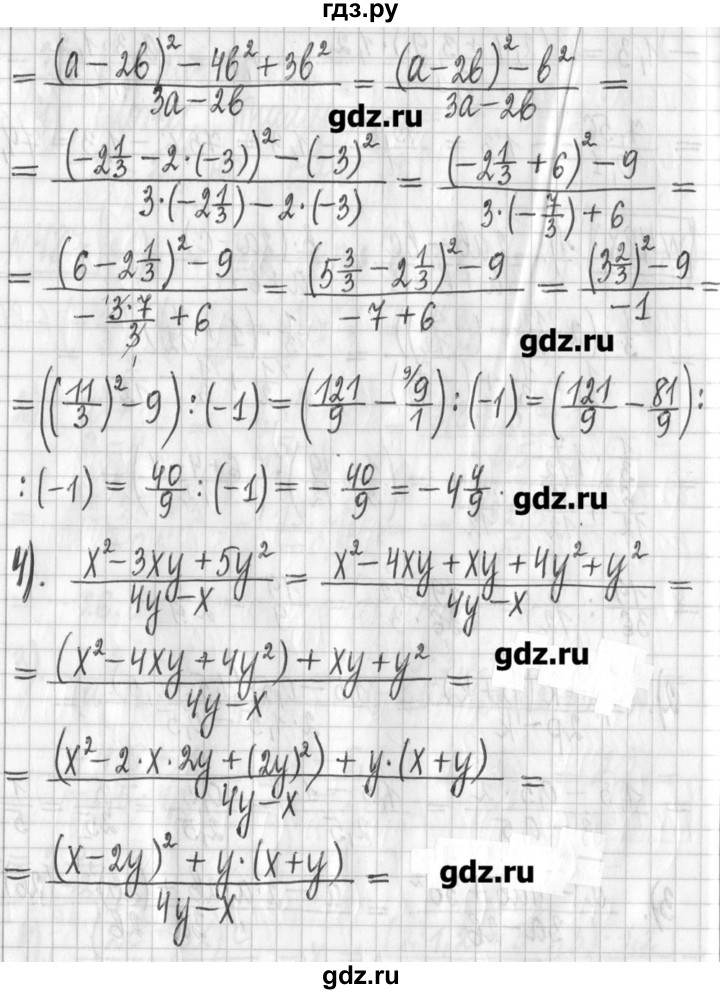 гдз.ру
= ((a − 2b)² − 4b² + 3b²)/(3a − 2b) = ((a − 2b)² − b²)/(3a − 2b) =
gdz.ru
= ((−2 1/3 − 2·(−3))² − (−3)²)/(3·(−2 1/3) − 2·(−3)) = ((−2 1/3 + 6)² − 9)/(3·(−7/3) + 6) =
= ((6 − 2 1/3)² − 9)/(−(3·7)/3 + 6) = ((5 3/3 − 2 1/3)² − 9)/(−7 + 6) = ((3 2/3)² − 9)/(−1) =
gdz.ru
= ((11/3)² − 9) : (−1) = (121/9 − ⁹⁄9/1) : (−1) = (121/9 − 81/9) :
: (−1) = 40/9 : (−1) = − 40/9 = −4 4/9.
gdz.ru
4). (x² − 3xy + 5y²)/(4y − x) = (x² − 4xy + xy + 4y² + y²)/(4y − x) =
= ((x² − 4xy + 4y²) + xy + y²)/(4y − x) =
gdz.ru
= ((x² − 2·x·2y + (2y)²) + y·(x + y))/(4y − x) =
= ((x − 2y)² + y·(x + y))/(4y − x) =
gdz.ru
gdz.ru